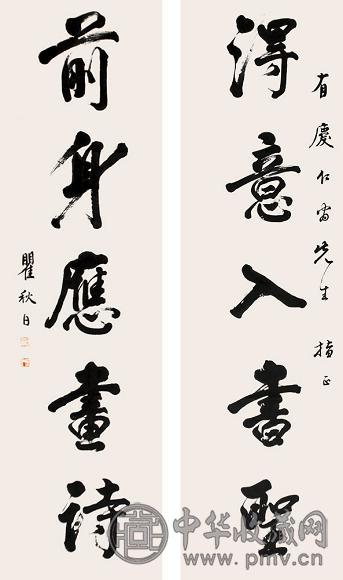 有慶仁先生 指正
得意入書聖
前身應畫詩
瞿秋白
中华收藏网
www.pmv.cn